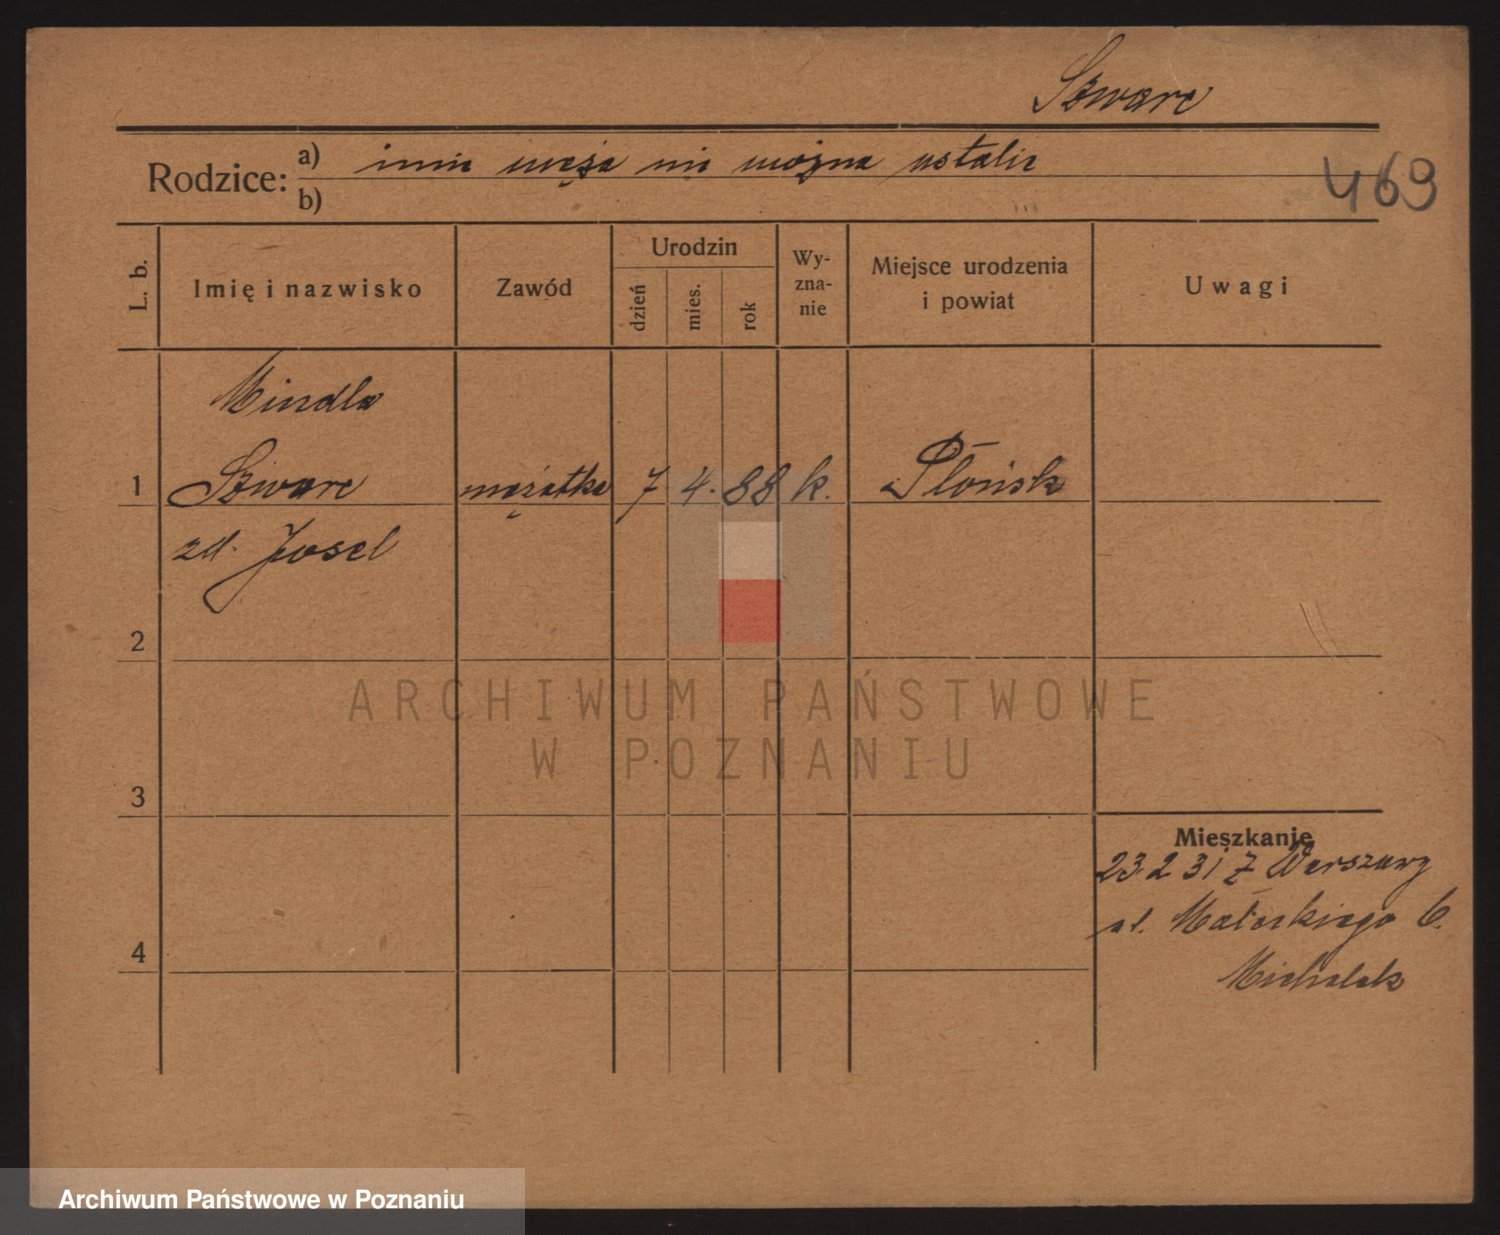 Szwarc
Rodzice: a) imie męża nie można ustalic
b)
469
L. b.
Imię i nazwisko
Zawód
Urodzin
dzień
mies.
rok
Wy-
zna-
nie
Miejsce urodzenia
i powiat
Uwagi
Mindla
1 Szwarc mężatka 7 4. 88 k. Płońsk
zd. Josel
2
ARCHIWUM PAŃSTWOWE
W POZNANIU
3
Mieszkanie
23.2 31 Z Warszawy
ul. Małeckiego 6.
4
Michalak
Archiwum Państwowe w Poznaniu